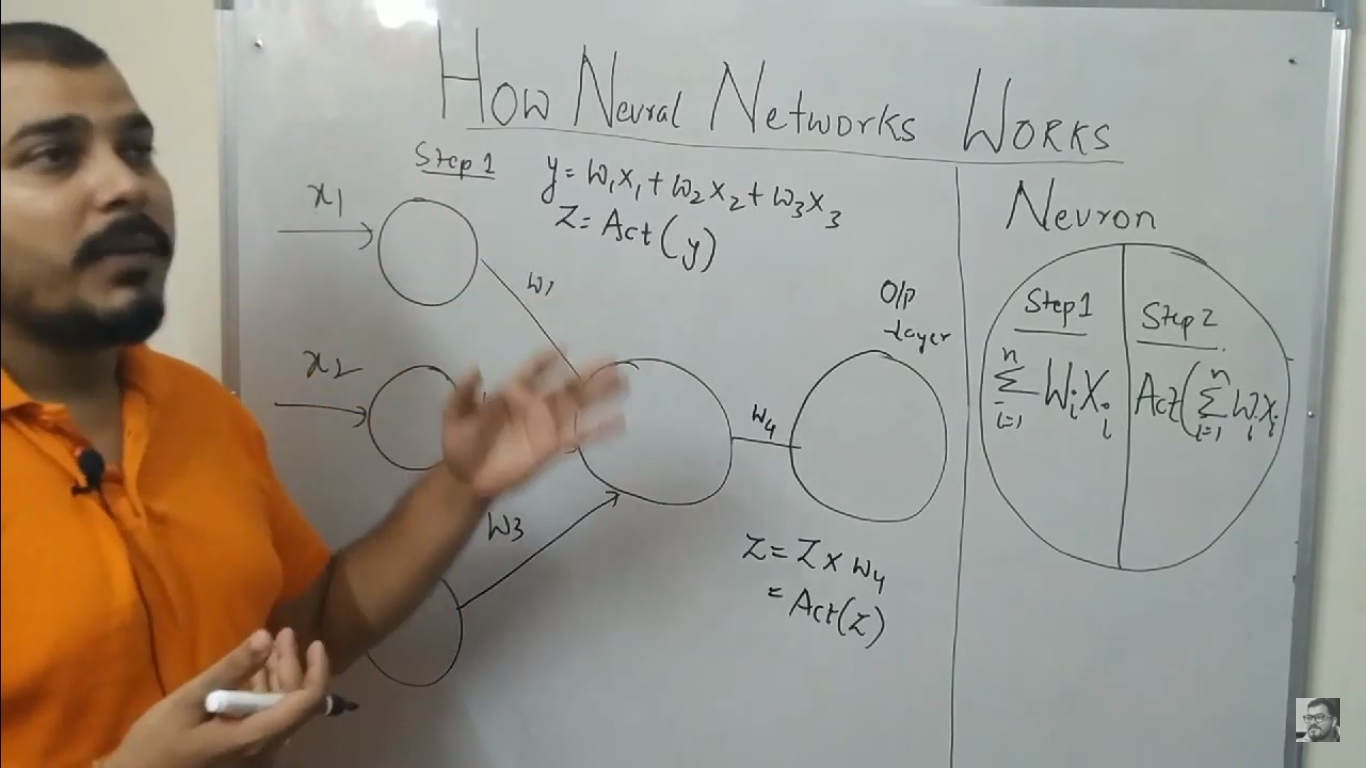 How Neural Networks Works
Step 1
y = w₁x₁ + w₂x₂ + w₃x₃
Z = Act(y)
x₁
w₁
x₂
w₃
w₄
O/p
Layer
Z = Z x w₄
= Act(Z)
Neuron
Step 1
n
∑ WᵢXᵢ
i=1
Step 2
n
Act(∑ WᵢXᵢ
i=1